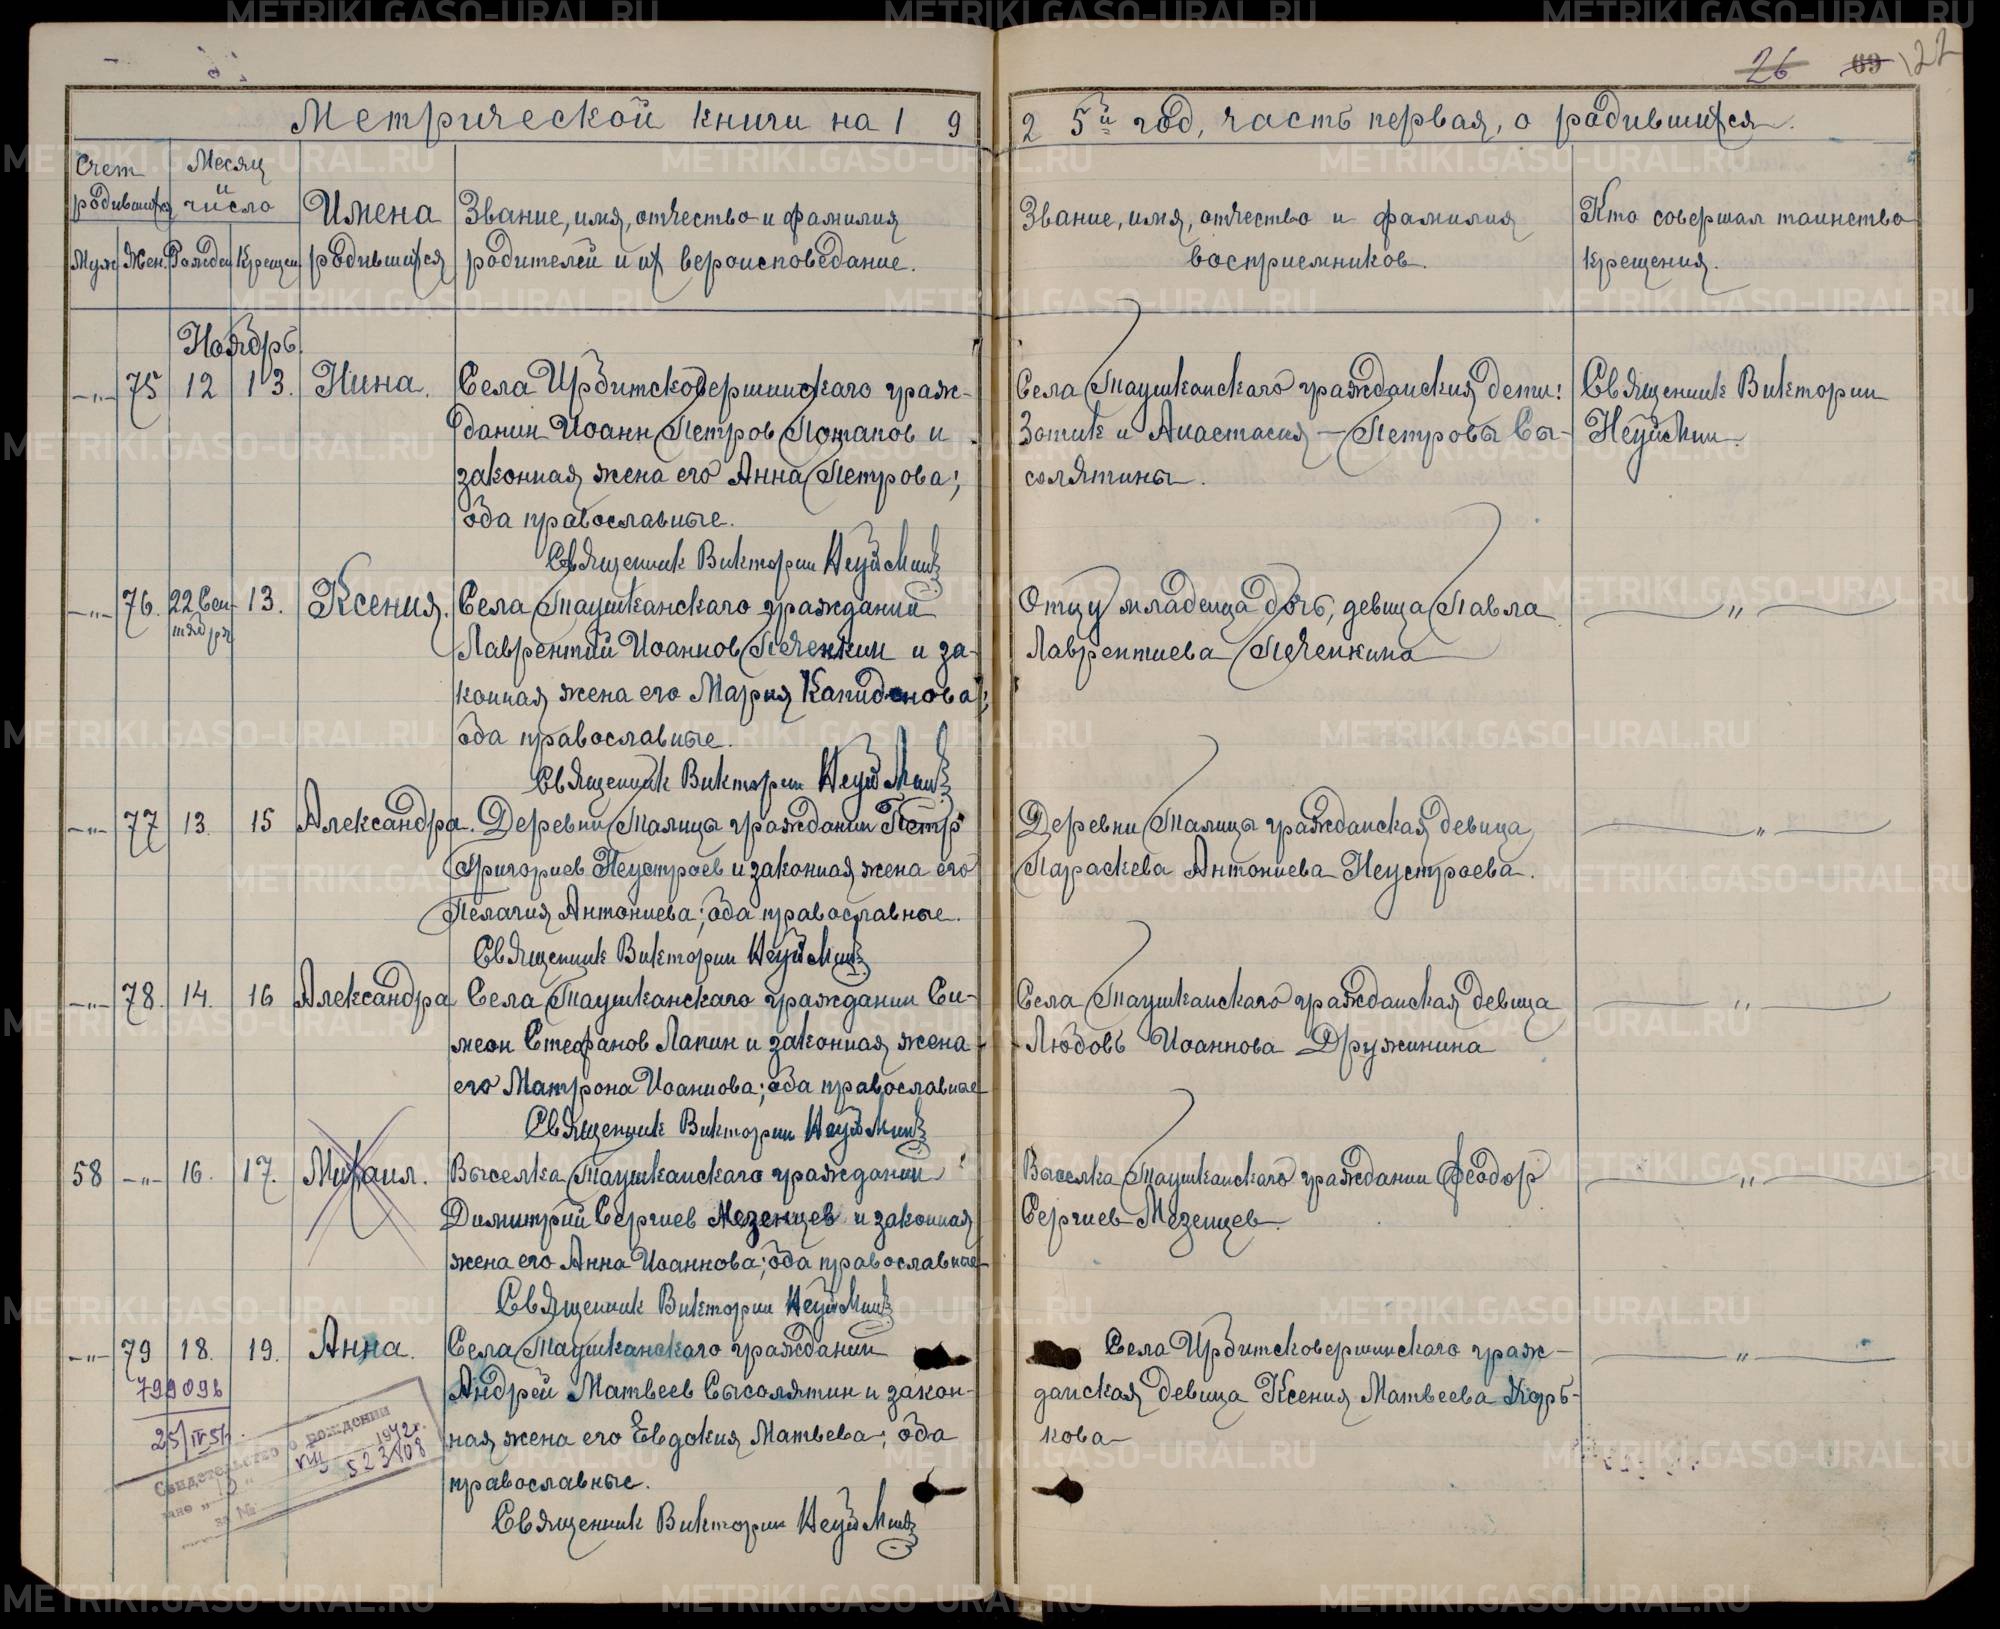 26 69 122
Метрической книги на 1 9 2 5й год, часть первая, о родившихся.
Счет родившихся
Месяц и число
Имена родившихся
Звание, имя, отчество и фамилия родителей и их вероисповедание.
Звание, имя, отчество и фамилия восприемников.
Кто совершал таинство крещения.
Муж. Жен. Рожден Крещен
Ноябрь
-"- 75 12 13. Нина.
Села Ирбитсковершинскаго граж-
данин Иоанн Петров Потапов и
законная жена его Анна Петрова;
оба православные.
Священник Викторин Неуймин
Села Таушканскаго гражданския дети:
Зотик и Анастасия – Петровы Сы-
солятины.
Священник Викторин
Неуймин.
-"- 76. 22 Сен-
тября 13. Ксения.
Села Таушканскаго гражданин
Лаврентий Иоаннов Печенкин и за-
конная жена его Мария Капидонова;
оба православные.
Священник Викторин Неуймин
Отцу младенца дочь, девица Павла
Лаврентиева Печенкина
"
-"- 77 13. 15 Александра.
Деревни Талицы гражданин Петр
Григориев Неустроев и законная жена его
Пелагия Антониева; оба православные.
Священник Викторин Неуймин
Деревни Талицы гражданская девица
Параскева Антониева Неустроева.
"
-"- 78. 14. 16 Александра
Села Таушканскаго гражданин Си-
меон Стефанов Лапин и законная жена
его Матрона Иоаннова; оба православные
Священник Викторин Неуймин
Села Таушканскаго гражданская девица
Любовь Иоаннова Дружинина
"
58 -"- 16. 17. Михаил.
Выселка Таушканскаго гражданин
Димитрий Сергиев Мезенцев и законная
жена его Анна Иоаннова; оба православные
Священник Викторин Неуймин
Выселка Таушканскаго гражданин Феодор
Сергиев Мезенцев.
"
-"- 79 18. 19. Анна.
Села Таушканскаго гражданин
Андрей Матвеев Сысолятин и закон-
ная жена его Евдокия Матвеева; оба
православные.
Священник Викторин Неуймин
Села Ирбитсковершинскаго граж-
данская девица Ксения Матвеева Харь-
кова
"
Свидетельство о рождении
VIII 1942 г.
за № 523108
METRIKI.GASO-URAL.RU